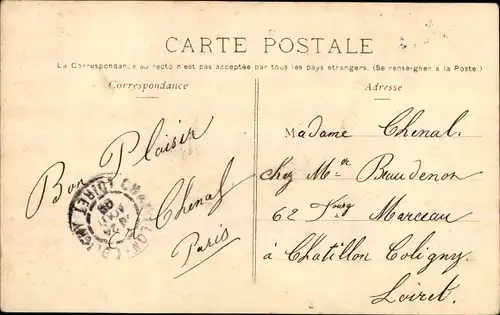 CARTE POSTALE
La Correspondance au recto n'est pas acceptée par tous les pays étrangers. (Se renseigner à la Poste.)
Correspondance
Adresse
Bon Plaisir
Chenal
Paris
Madame Chenal.
chez Mme Baudenon
62 Fourg Marceau
à Chatillon Coligny.
Loiret.
LOIRET